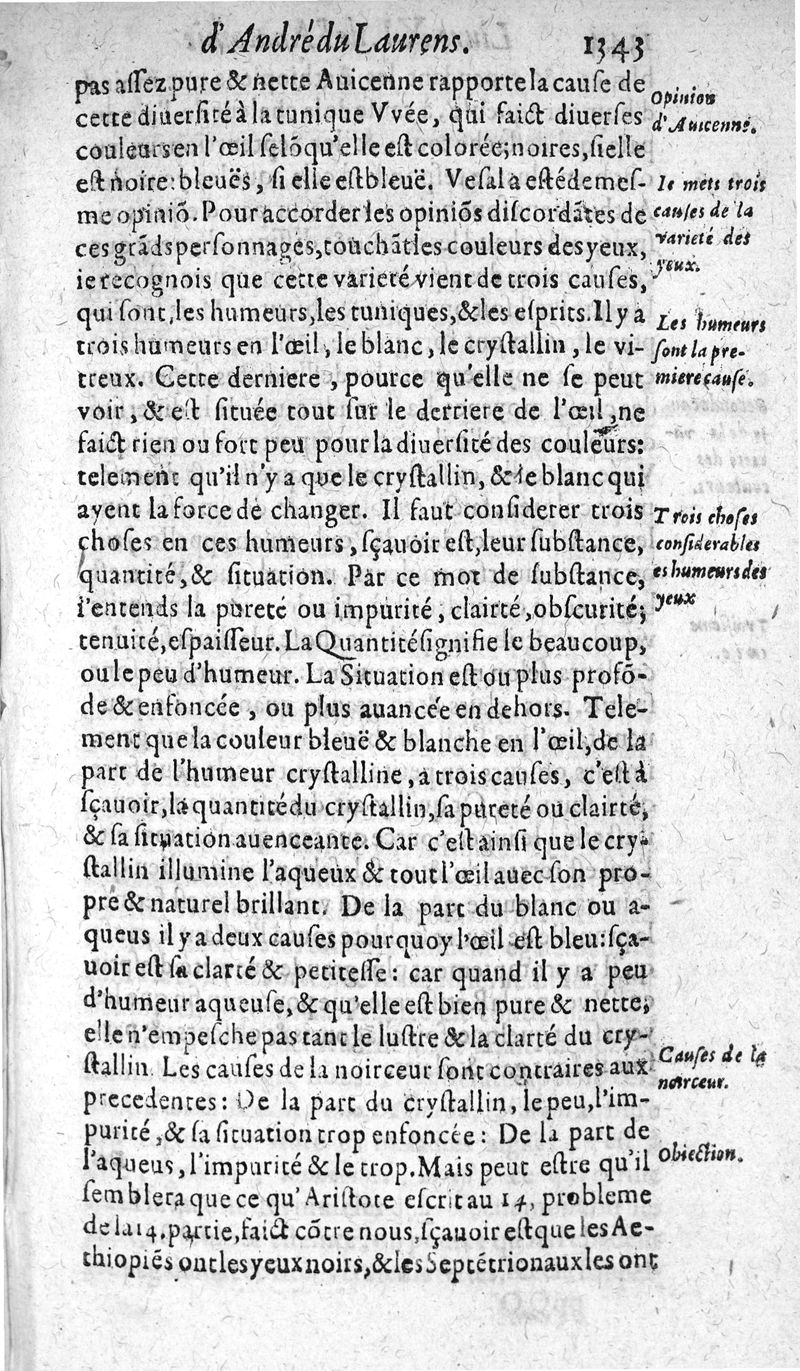 d'André du Laurens. 1343
pas assez pure & nette Auicenne rapporte la cause de
Opinion
cette diuersité à la tunique Vvée, qui faict diuerses
d'Auicenne.
couleurs en l'œil selõ qu'elle est colorée; noires, si elle
est noire: bleuës, si elle est bleuë. Vesal a esté de mes-
Ie mets trois
me opiniõ. Pour accorder les opiniõs discordãtes de
causes de la
ces grãds personnages, touchãt les couleurs des yeux,
varieté des
ie recognois que cette varieté vient de trois causes,
yeux.
qui sont, les humeurs, les tuniques, & les esprits. Il y a
Les humeurs
trois humeurs en l'œil, le blanc, le crystallin, le vi-
sont la pre-
treux. Cette derniere, pource qu'elle ne se peut
miere cause.
voir, & est située tout sur le derriere de l'œil, ne
faict rien ou fort peu pour la diuersité des couleurs:
telement qu'il n'y a que le crystallin, & le blanc qui
ayent la force de changer. Il faut considerer trois
Trois choses
choses en ces humeurs, sçauoir est, leur substance,
considerables
quantité, & situation. Par ce mot de substance,
es humeurs des
i'entends la pureté ou impurité, clairté, obscurité;
yeux
tenuité, espaisseur. La Quantité signifie le beaucoup,
ou le peu d'humeur. La Situation est ou plus profõ-
de & enfoncée, ou plus auancée en dehors. Tele-
ment que la couleur bleuë & blanche en l'œil, de la
part de l'humeur crystalline, a trois causes, c'est à
sçauoir, la quantité du crystallin, sa pureté ou clairté,
& sa situation auenceante. Car c'est ainsi que le cry-
stallin illumine l'aqueux & tout l'œil auec son pro-
pre & naturel brillant. De la part du blanc ou a-
queus il y a deux causes pourquoy l'œil est bleu: sça-
uoir est sa clarté & petitesse: car quand il y a peu
d'humeur aqueuse, & qu'elle est bien pure & nette,
elle n'empesche pas tant le lustre & la clarté du cry-
stallin. Les causes de la noirceur sont contraires aux
Causes de la
noirceur.
precedentes: De la part du crystallin, le peu, l'im-
purité, & sa situation trop enfoncée: De la part de
l'aqueus, l'impurité & le trop. Mais peut estre qu'il
Obiection.
semblera que ce qu'Aristote escrit au 14, probleme
de la 14. partie, faict cõtre nous, sçauoir est que les Ae-
thiopiẽs ont les yeux noirs, & les Septẽtrionaux les ont